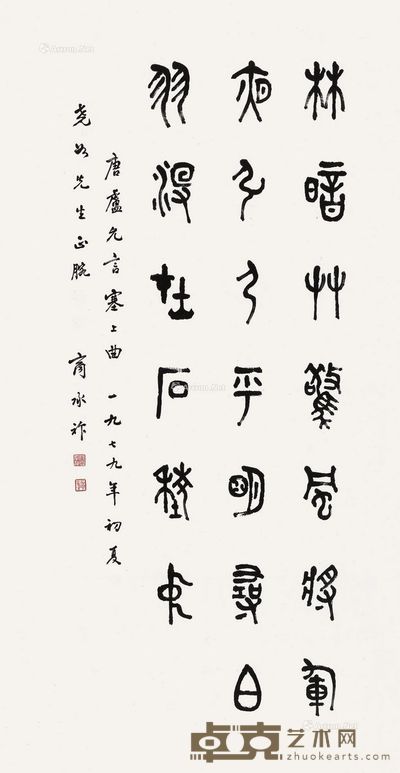 林暗艸驚風將軍
夜引弓平明尋白
羽没在石棱中
唐盧允言塞上曲 一九七九年初夏
尧如先生正腕 商承祚
卓克艺术网
zhuokearts.com